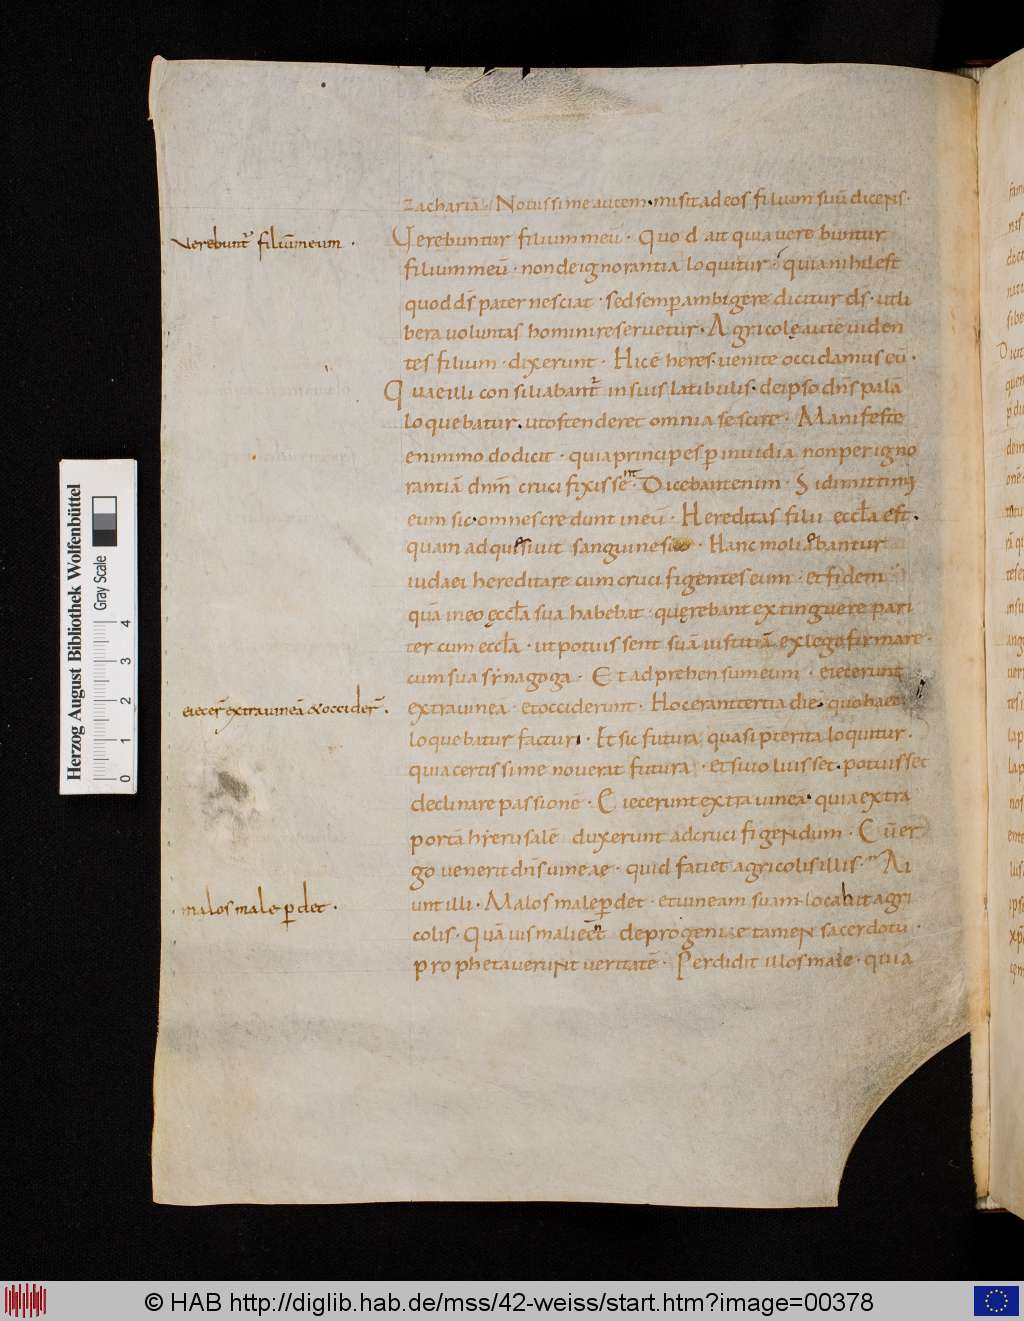 zachariā · Nouissime autem misit ad eos filium suū dicens ·
verebunt filiū meum ·
Verebuntur filium meū · Quod ait quia uerebuntur
filium meū · non de ignorantia loquitur · quia nihil est
quod ds pater nesciat · sed semp ambigere dicitur ds · ut li
bera uoluntas homini reseruetur · Agricolę autē uiden
tes filium · dixerunt · Hic ē heres · uenite occidamus eū ·
Quae illi consiliabant in suis latibulis · de ipso dns palā
loquebatur · ut ostenderet omnia se scire · Manifeste
enim modo dicit · quia principes p inuidia non per igno
rantiā dnm crucifixisse Dicebant enim · Si dimittimus
eum sic · omnes credunt in eū · Hereditas filii eccla est ·
quam adquesiuit sanguine suo · Hanc moliebantur
iudaei hereditare cum crucifigentes eum · et fidem
quā in eo ęccla sua habebat · quęrebant extinguere pari
ter cum eccla · ut potuissent suā iustitiā ex lege firmare ·
cum sua synagoga · Et adprehensum eum · eiecerunt
eiecer extra uineā & occider ·
extra uinea · et occiderunt · Hoc erant tertia die · quo haec
loquebatur facturi · Et sic futura quasi pterita loquitur ·
quia certissime nouerat futura · et si uoluisset · potuisset
declinare passionē · Eiecerunt extra uinea · quia extra
portā hyerusalē duxerunt ad crucifigendum · Cū er
go uenerit dns uineae · quid faciet agricolis illis · Ai
unt illi · Malos male p det · et uineam suam locabit agri
· malos male p det ·
colis · Quā uis mali eent de progeniae tamen sacerdotū ·
prophetauerunt ueritatē · Perdidit illos male · quia
Herzog August Bibliothek Wolfenbüttel
Gray Scale
0 1 2 3 4
© HAB http://diglib.hab.de/mss/42-weiss/start.htm?image=00378